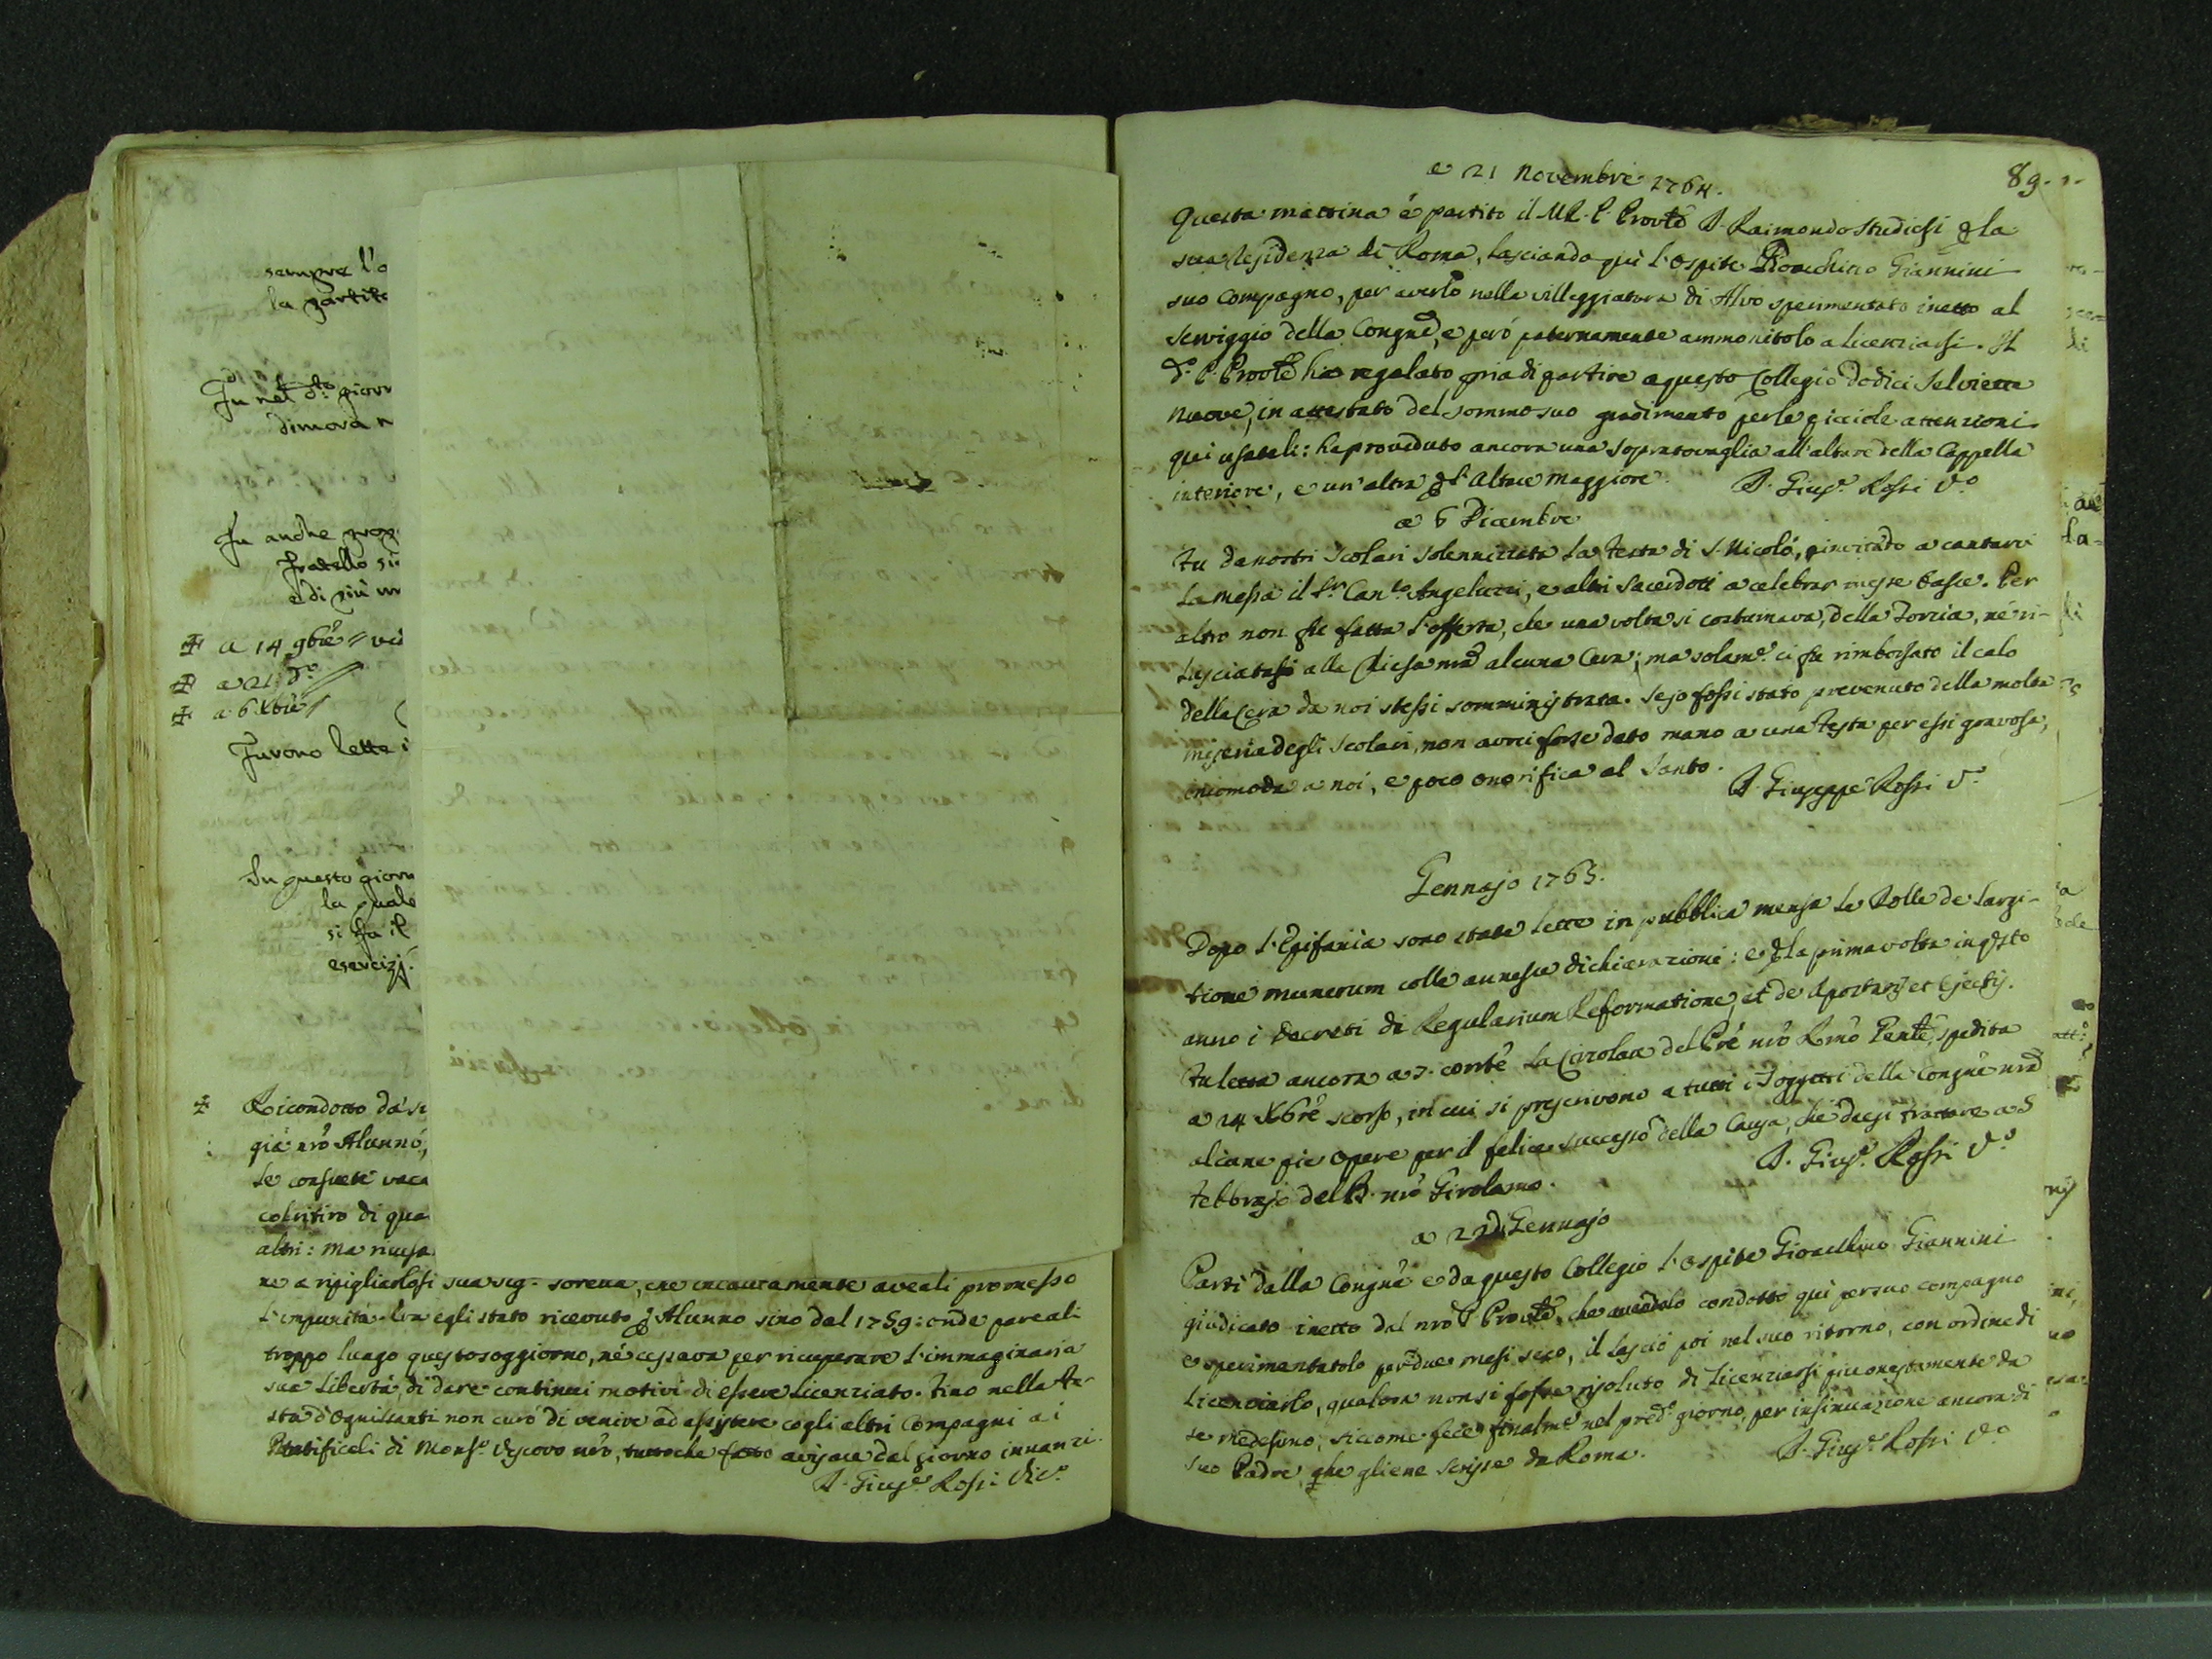 sempre l'o
la partit
Fu nel d.to giorn
dimora n
Fu anche prop
fratello si
e di più un
a 14 9bre
a 21 d.o
a 6 Xbre
Furono lette i
In questo giorn
la quale
si fa il
esercizj.
Ricondotto da s
già nrō Alunno,
le consuete vaca
col ritiro di qua
altri: ma ricusa
ne a ripigliarlosi sua sig. sorella, che incautamente aveali promesso
l'impunità. Era egli stato ricevuto ꝑ Alunno sino dal 1759: onde pareali
troppo lungo questo soggiorno, nè cessava per ricuperare l'immaginaria
sua libertà, di dare continui motivi di essere licenziato. Fino nella Fe-
sta d'Ognissanti non curò di venire ad assistere cogli altri Compagni ai
Pontificali di Mons.r Vescovo nrō, tuttoche fatto avisare dal giorno innanzi.
D. Giusp.e Rossi Vic.o
89.
a 21 Novembre 1764.
Questa mattina è partito il M.R.P. Provlē D. Raimondo Studiosi ꝑ la
sua residenza di Roma, lasciando quì l'Ospite Gioachino Giannini
suo Compagno, per averlo nella villeggiatura di Alvo sperimentato inetto al
serviggio della Congnē, e però paternamente ammonitolo a licenziarsi. Il
d.o P. Provlē ha regalato pria di partire a questo Collegio dodici Salviette
nuove, in attestato del sommo suo gradimento per le picciole attenzioni
quì usateli: ha proveduto ancora una sopratovaglia all'altare della Cappella
interiore, e un'altra ꝑ l'Altare Maggiore.
D. Giusp.e Rossi V.o
a 6 Dicembre
Fu da nostri Scolari solennizzata la Festa di S. Nicolò, invitando a cantarvi
la Messa il S.r Can.co Angelucci, e altri Sacerdoti a celebrar messe basse. Per
altro non fu fatta l'offerta, che una volta si costumava, della Torcia, nè ri-
lasciatasi alla Chiesa nrā alcuna Cera; ma solam.e ci fu rimborsato il calo
della Cera da noi stessi somministrata. Se jo fossi stato prevenuto della molta
miseria degli Scolari, non avrei forse dato mano a una Festa per essi gravosa,
incomoda a noi, e poco onorifica al Santo.
D. Giuseppe Rossi V.o
Gennajo 1765.
Dopo l'Epifania sono state lette in pubblica mensa le Bolle de Largi-
tione munerum colle annesse dichiarazioni: e ꝑ la prima volta in qsto
anno i Decreti de Regularium Reformatione, et de Apostatis et Ejectis.
Fu letta ancora a 7. corrte la Circolare del Prē nrō Rmō Gentē, spedita
a 24 Xbre scorso, in cui si prescrivono a tutti i Soggetti della Congnē nrā
alcune pie opere per il felice successo della Causa, che deesi trattare a 5
Febbrajo del B. nrō Girolamo.
D. Giusp.e Rossi V.o
a 22 di Gennajo
Partì dalla Congnē e da questo Collegio l'Ospite Gioacchino Giannini
giudicato inetto dal nrō P. Provlē, che avendolo condotto quì per suo compagno
e sperimentatolo per due mesi seco, il lasciò poi nel suo ritorno, con ordine di
licenziarlo, qualora non si fosse risoluto di licenziarsi più onestamente da
se medesimo, siccome fece finalm.e nel pred.o giorno, per insinuazione ancora di
suo Padre, che gliene scrisse da Roma.
D. Giusp.e Rossi V.o